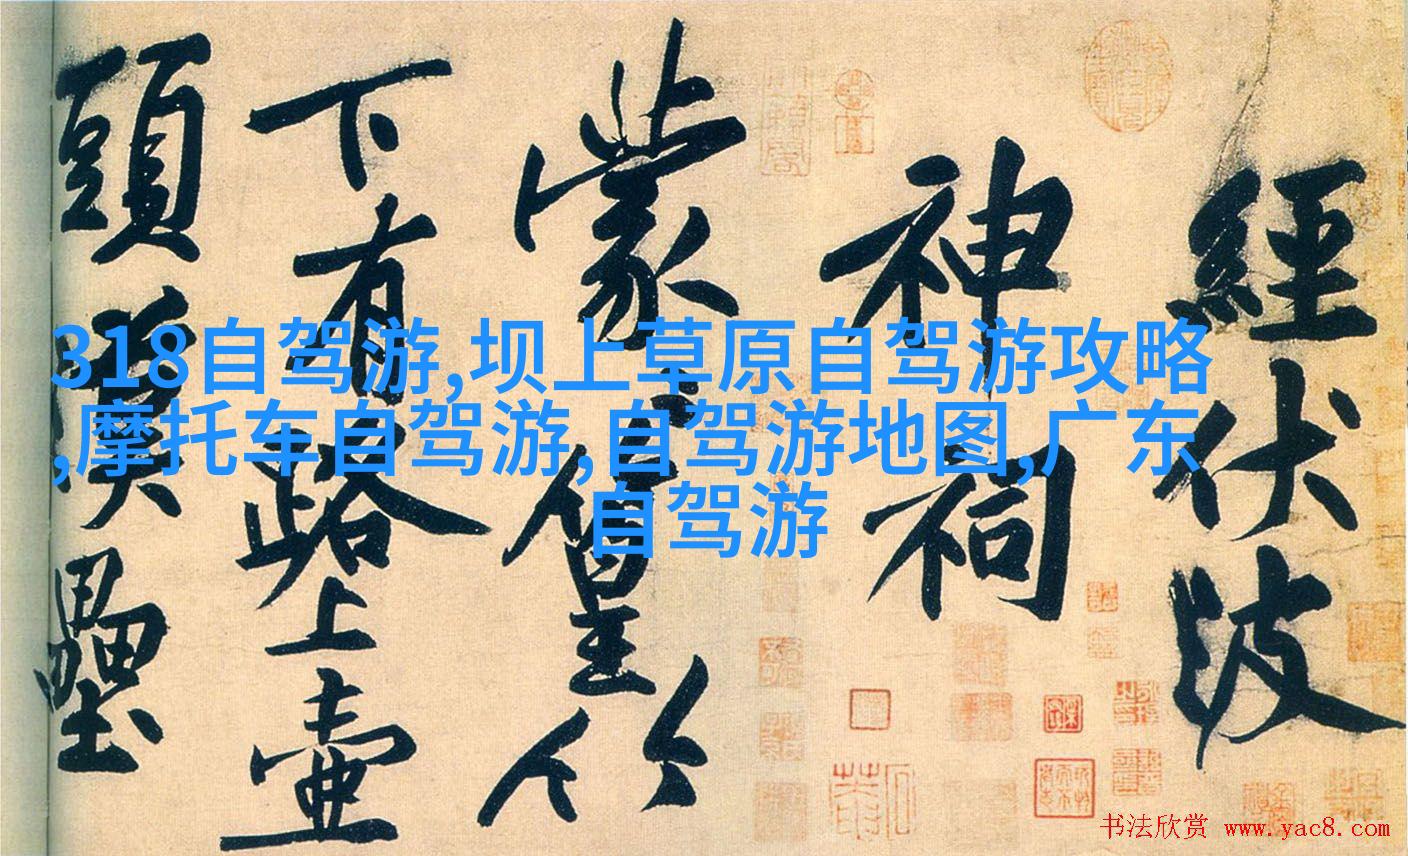 經伏波
神祠
蒙蒙篁竹
下有路上壺
頭漢壘
318自驾游,坝上草原自驾游攻略
,摩托车自驾游,自驾游地图,广东
自驾游
书法欣赏 www.yac8.com